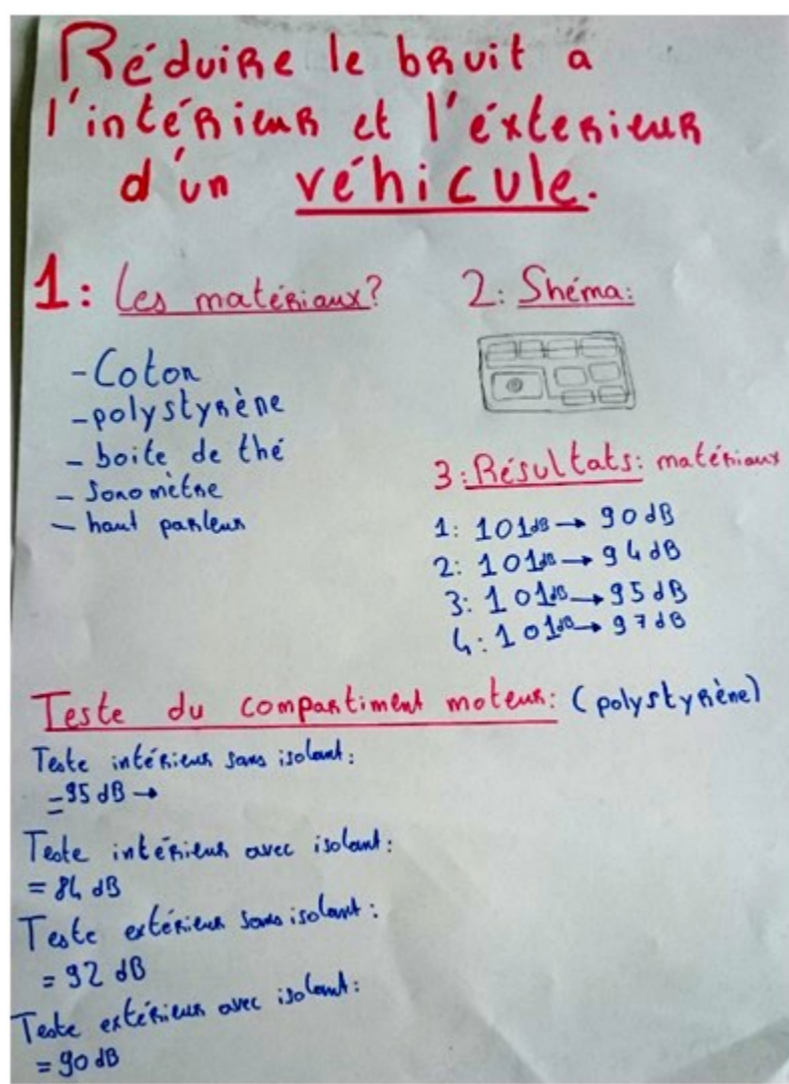 Réduire le bruit a
l'intérieur et l'éxterieur
d'un véhicule.
1: Les matériaux?
- Coton
- polystyrène
- boite de thé
- Sonomètre
- haut parleur
2: Shéma:
3: Résultats: matériaux
1: 101dB → 90 dB
2: 101dB → 94 dB
3: 101dB → 95 dB
4: 101dB → 97 dB
Teste du compartiment moteur: (polystyrène)
Teste intérieur sans isolant:
= 95 dB →
Teste intérieur avec isolant:
= 84 dB
Teste extérieur sans isolant:
= 92 dB
Teste extérieur avec isolant:
= 90 dB